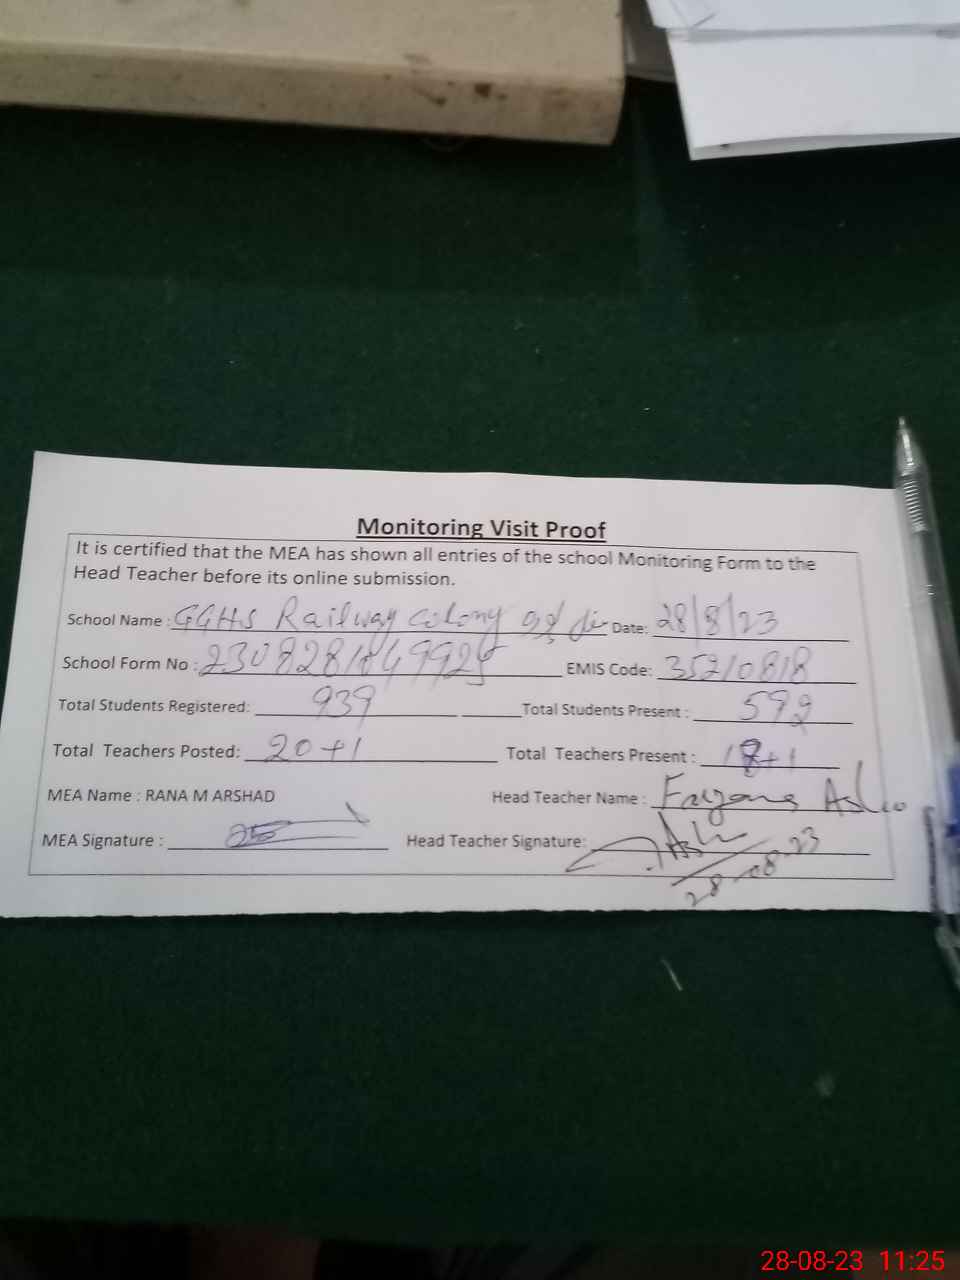 Monitoring Visit Proof
It is certified that the MEA has shown all entries of the school Monitoring Form to the
Head Teacher before its online submission.
School Name : GGHS Railway Colony Date: 28/8/23
School Form No : EMIS Code: 35210818
Total Students Registered: 939 Total Students Present : 592
Total Teachers Posted: 20+1 Total Teachers Present : 18+1
MEA Name : RANA M ARSHAD Head Teacher Name :
MEA Signature : Head Teacher Signature:
28-08-23
28-08-23 11:25